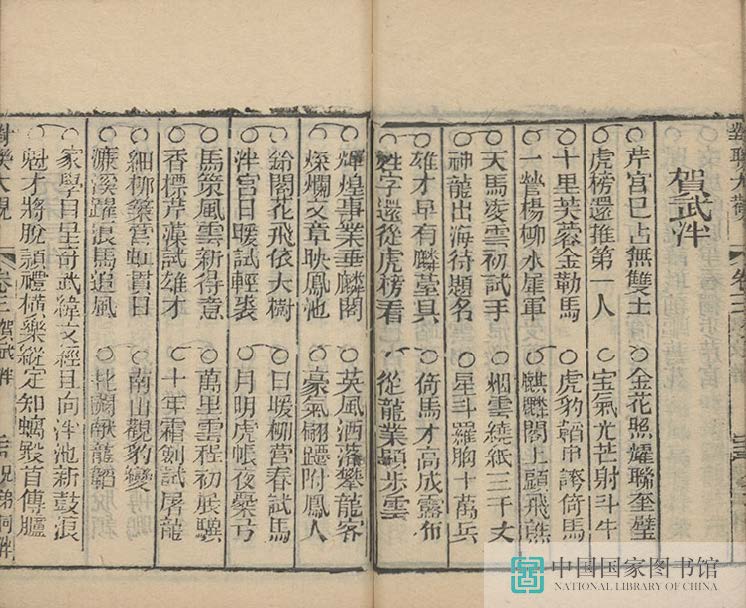 對聯大觀
卷三
賀武泮
芹宮已占無雙士
金花照耀聯奎璧
虎榜還推第一人
寶氣光芒射斗牛
十里芙蓉金勒馬
虎豹韜中誇倚馬
一營楊柳水犀軍
麒麟閣上顯飛熊
天馬凌雲初試手
烟雲繞紙三千丈
神龍出海待題名
星斗羅胸十萬兵
雄才早有麟臺具
倚馬才高成露布
姓字還從虎榜看
從龍業顯步雲
輝煌事業垂麟閣
英風洒落攀龍客
燦爛文章映鳳池
豪氣翩躚附鳳人
鈴閣花飛依大樹
日暖柳營春試馬
泮宮日暖試輕裝
月明虎帳夜櫜弓
馬策風雲新得意
萬里雲程初展驥
香標芹藻試雄才
十年霜劍試屠龍
細柳築營虹貫日
南山觀豹變
濂溪躍浪馬追風
北闕献龍韜
家學自星奇武緯文經且向泮池新鼓浪
魁才將脫穎禮橫樂縱定知螭殿首傳臚
對聯大觀
卷三
賀武泮
兄弟同泮
中国国家图书馆
NATIONAL LIBRARY OF CHINA